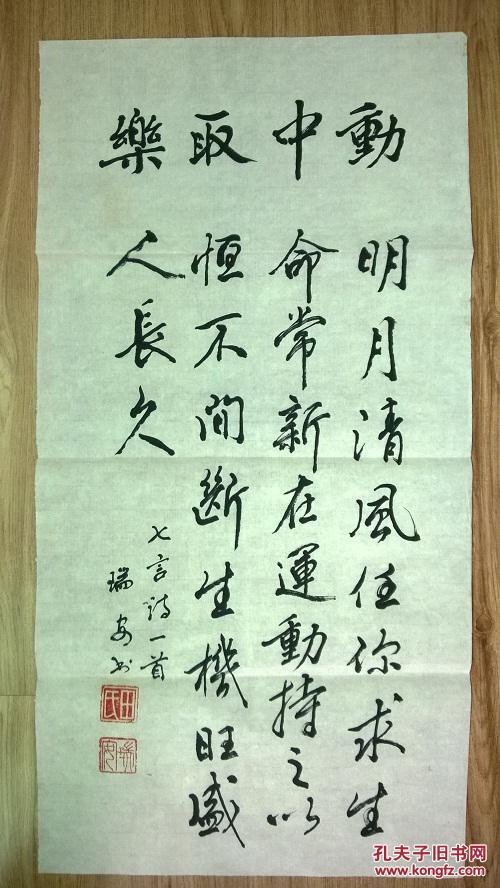 動中取樂
明月清風任你求生
命常新在運動持之以
恒不間斷生機旺盛
人長久
七言詩一首
瑞安书
田氏
孔夫子旧书网
www.kongfz.com